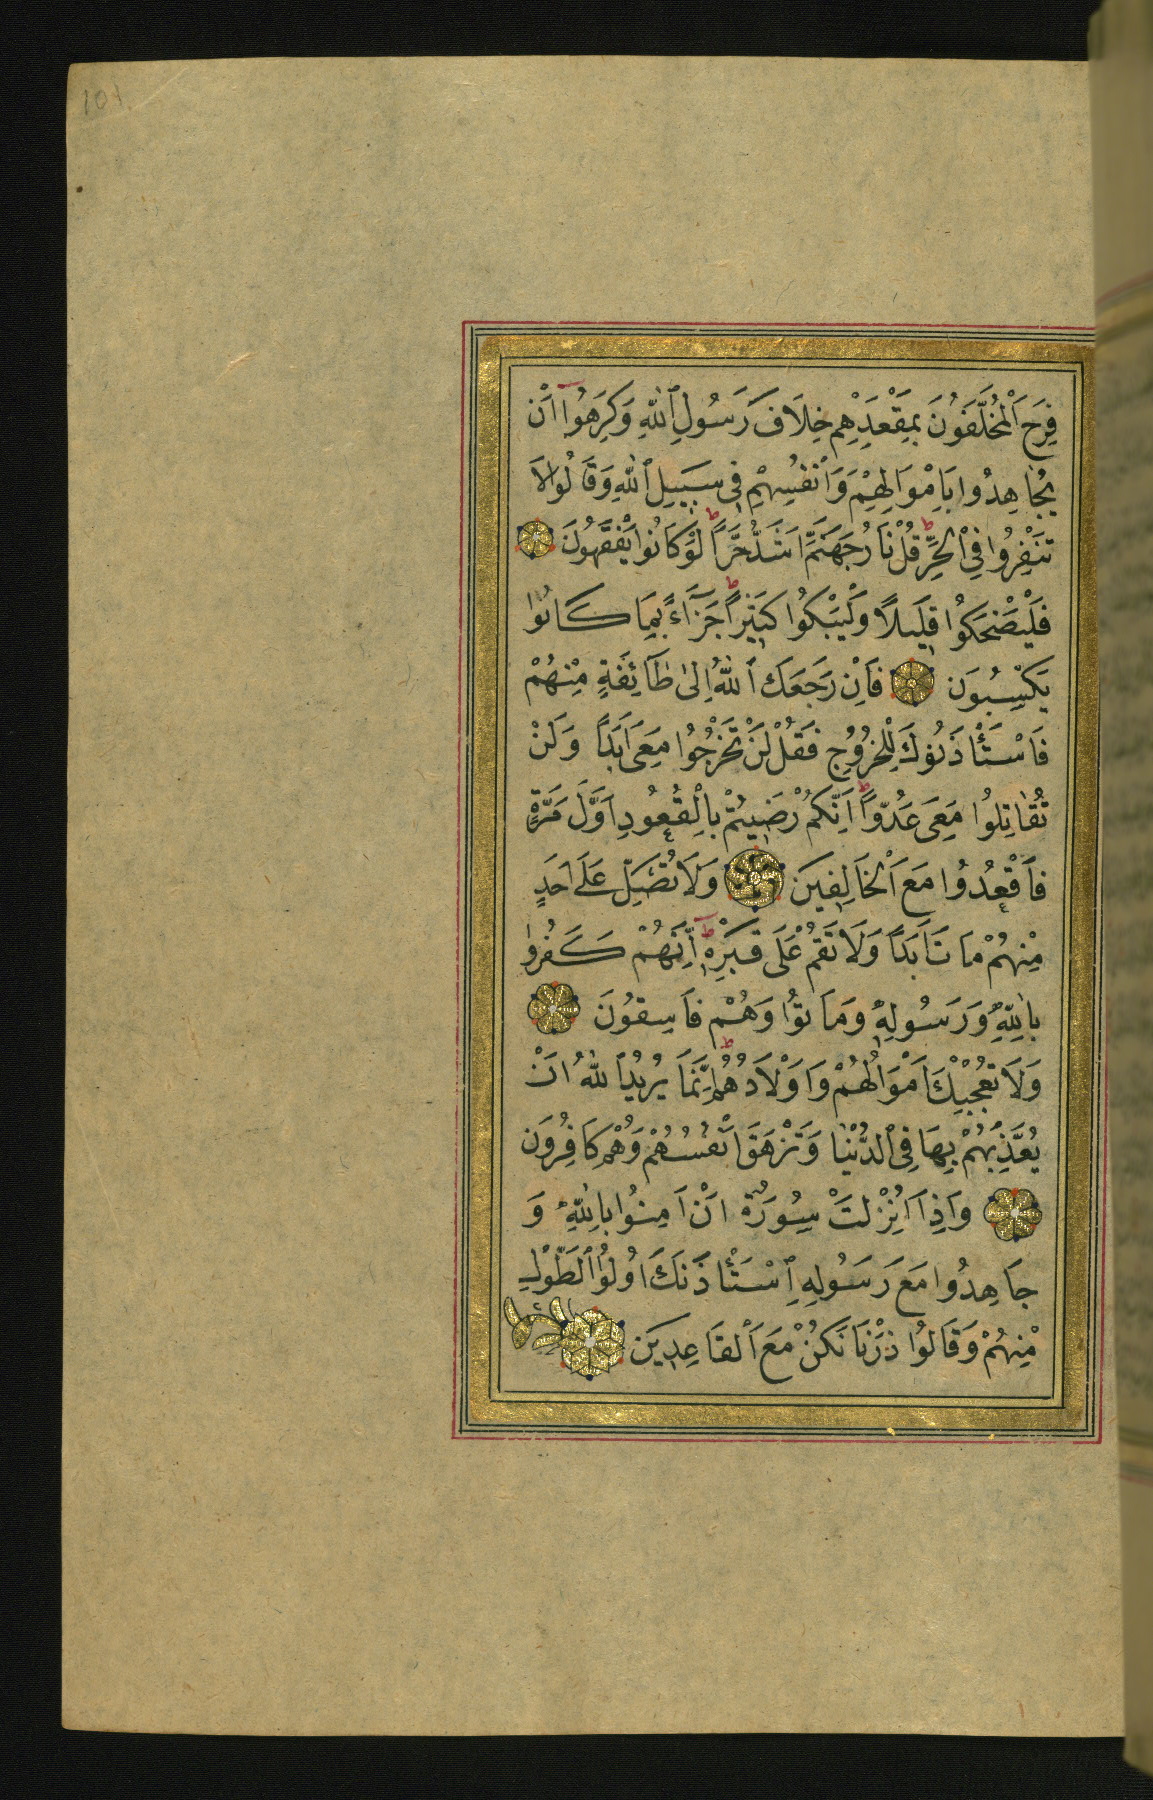 فَرِحَ الْمُخَلَّفُونَ بِمَقْعَدِهِمْ خِلَافَ رَسُولِ اللّٰهِ وَكَرِهُوٓا اَنْ
يُجَاهِدُوا بِاَمْوَالِهِمْ وَاَنْفُسِهِمْ فِى سَبِيلِ اللّٰهِ وَقَالُوا لَا
تَنْفِرُوا فِى الْحَرِّ ط قُلْ نَارُ جَهَنَّمَ اَشَدُّ حَرًّا ط لَوْ كَانُوا يَفْقَهُونَ
فَلْيَضْحَكُوا قَلِيلًا وَلْيَبْكُوا كَثِيرًا ط جَزَآءً بِمَا كَانُوا
يَكْسِبُونَ فَاِنْ رَجَعَكَ اللّٰهُ اِلٰى طَآئِفَةٍ مِنْهُمْ
فَاسْتَأْذَنُوكَ لِلْخُرُوجِ فَقُلْ لَنْ تَخْرُجُوا مَعِىَ اَبَدًا وَلَنْ
تُقَاتِلُوا مَعِىَ عَدُوًّا ط اِنَّكُمْ رَضِيتُمْ بِالْقُعُودِ اَوَّلَ مَرَّةٍ
فَاقْعُدُوا مَعَ الْخَالِفِينَ وَلَا تُصَلِّ عَلٰٓى اَحَدٍ
مِنْهُمْ مَاتَ اَبَدًا وَلَا تَقُمْ عَلٰى قَبْرِهِ ط اِنَّهُمْ كَفَرُوا
بِاللّٰهِ وَرَسُولِهِ وَمَاتُوا وَهُمْ فَاسِقُونَ
وَلَا تُعْجِبْكَ اَمْوَالُهُمْ وَاَوْلَادُهُمْ ط اِنَّمَا يُرِيدُ اللّٰهُ اَنْ
يُعَذِّبَهُمْ بِهَا فِى الدُّنْيَا وَتَزْهَقَ اَنْفُسُهُمْ وَهُمْ كَافِرُونَ
وَاِذَا اُنْزِلَتْ سُورَةٌ اَنْ اٰمِنُوا بِاللّٰهِ وَ
جَاهِدُوا مَعَ رَسُولِهِ اِسْتَأْذَنَكَ اُولُوا الطَّوْلِ
مِنْهُمْ وَقَالُوا ذَرْنَا نَكُنْ مَعَ الْقَاعِدِينَ